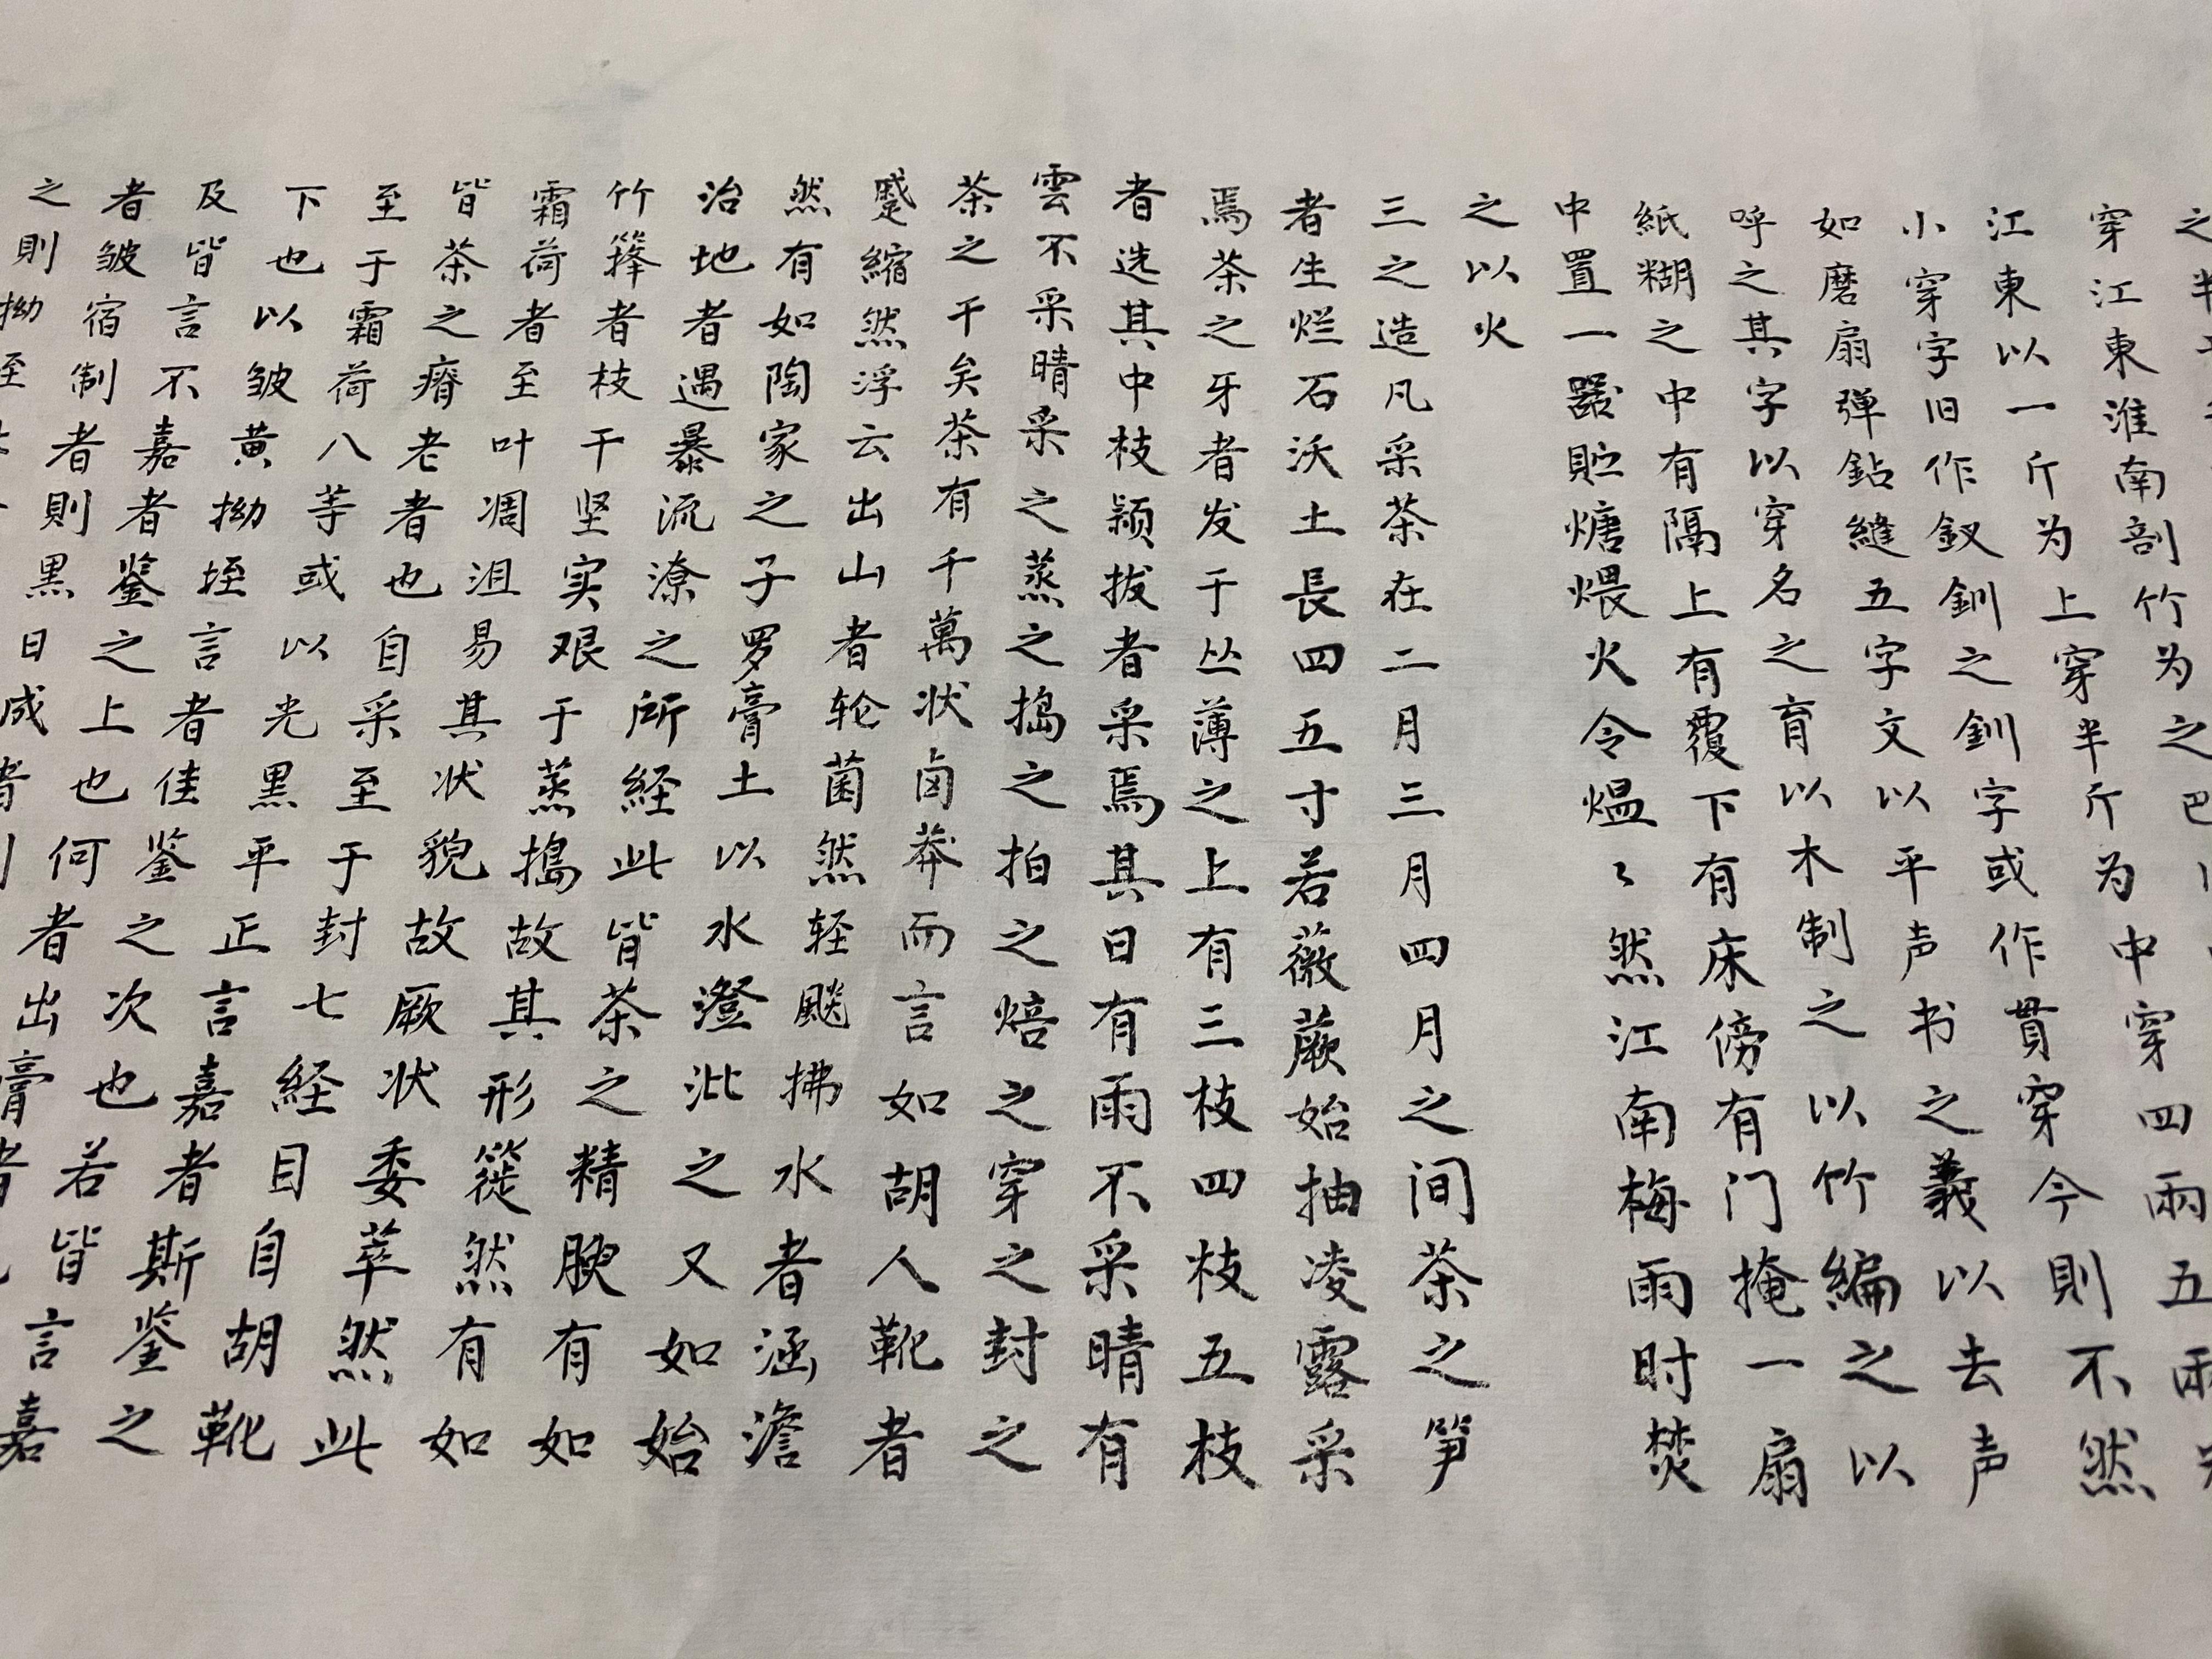 之
穿江東淮南剖竹为之巴
江東以一斤为上穿半斤为中穿四兩五兩
小穿字旧作釵釧之釧字或作貫穿今則不然
如磨扇弹鉆縫五字文以平声书之義以去声
呼之其字以穿名之育以木制之以竹編之以
紙糊之中有隔上有覆下有床傍有门掩一扇
中置一器貯煻煨火令熅〻然江南梅雨时焚
之以火
三之造凡采茶在二月三月四月之间茶之笋
者生烂石沃土長四五寸若薇蕨始抽凌露采
焉茶之牙者发于丛薄之上有三枝四枝五枝
者选其中枝颖拔者采焉其日有雨不采晴有
雲不采晴采之蒸之搗之拍之焙之穿之封之
茶之干矣茶有千萬状卤莽而言如胡人靴者
蹙縮然浮云出山者轮菌然轻飈拂水者涵澹
然有如陶家之子罗膏土以水澄泚之又如始
治地者遇暴流潦之所経此皆茶之精腴有如
竹箨者枝干坚实艰于蒸搗故其形簁然有如
霜荷者至叶凋沮易其状貌故厥状委萃然此
皆茶之瘠老者也自采至于封七経目自胡靴
至于霜荷八等或以光黑平正言嘉者斯鉴之
下也以皱黄拗垤言者佳鉴之次也若皆言嘉
及皆言不嘉者鉴之上也何者出膏者
者皱宿制者則黑日成者
之則拗垤